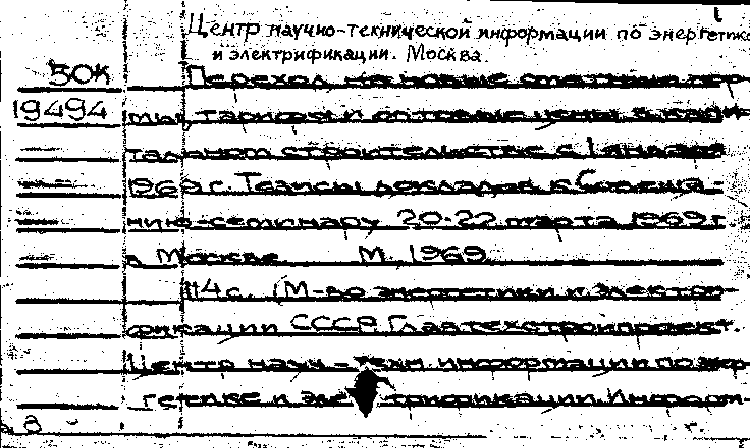 Центр научно-технической информации по энергетике
и электрификации. Москва.
50К Переход на новые сметные нор-
19494 мы, тарифы и оптовые цены в капи-
тальном строительстве с 1 января
1969 г. Тезисы докладов к Совеща-
нию-семинару 20-22 марта 1969 г.
в Москве. М. 1969
114 с. (М-во энергетики и электри-
фикации СССР. Главтехстройпроект.
Центр научн-техн. информации по энер-
гетике и электрификации. Информ-